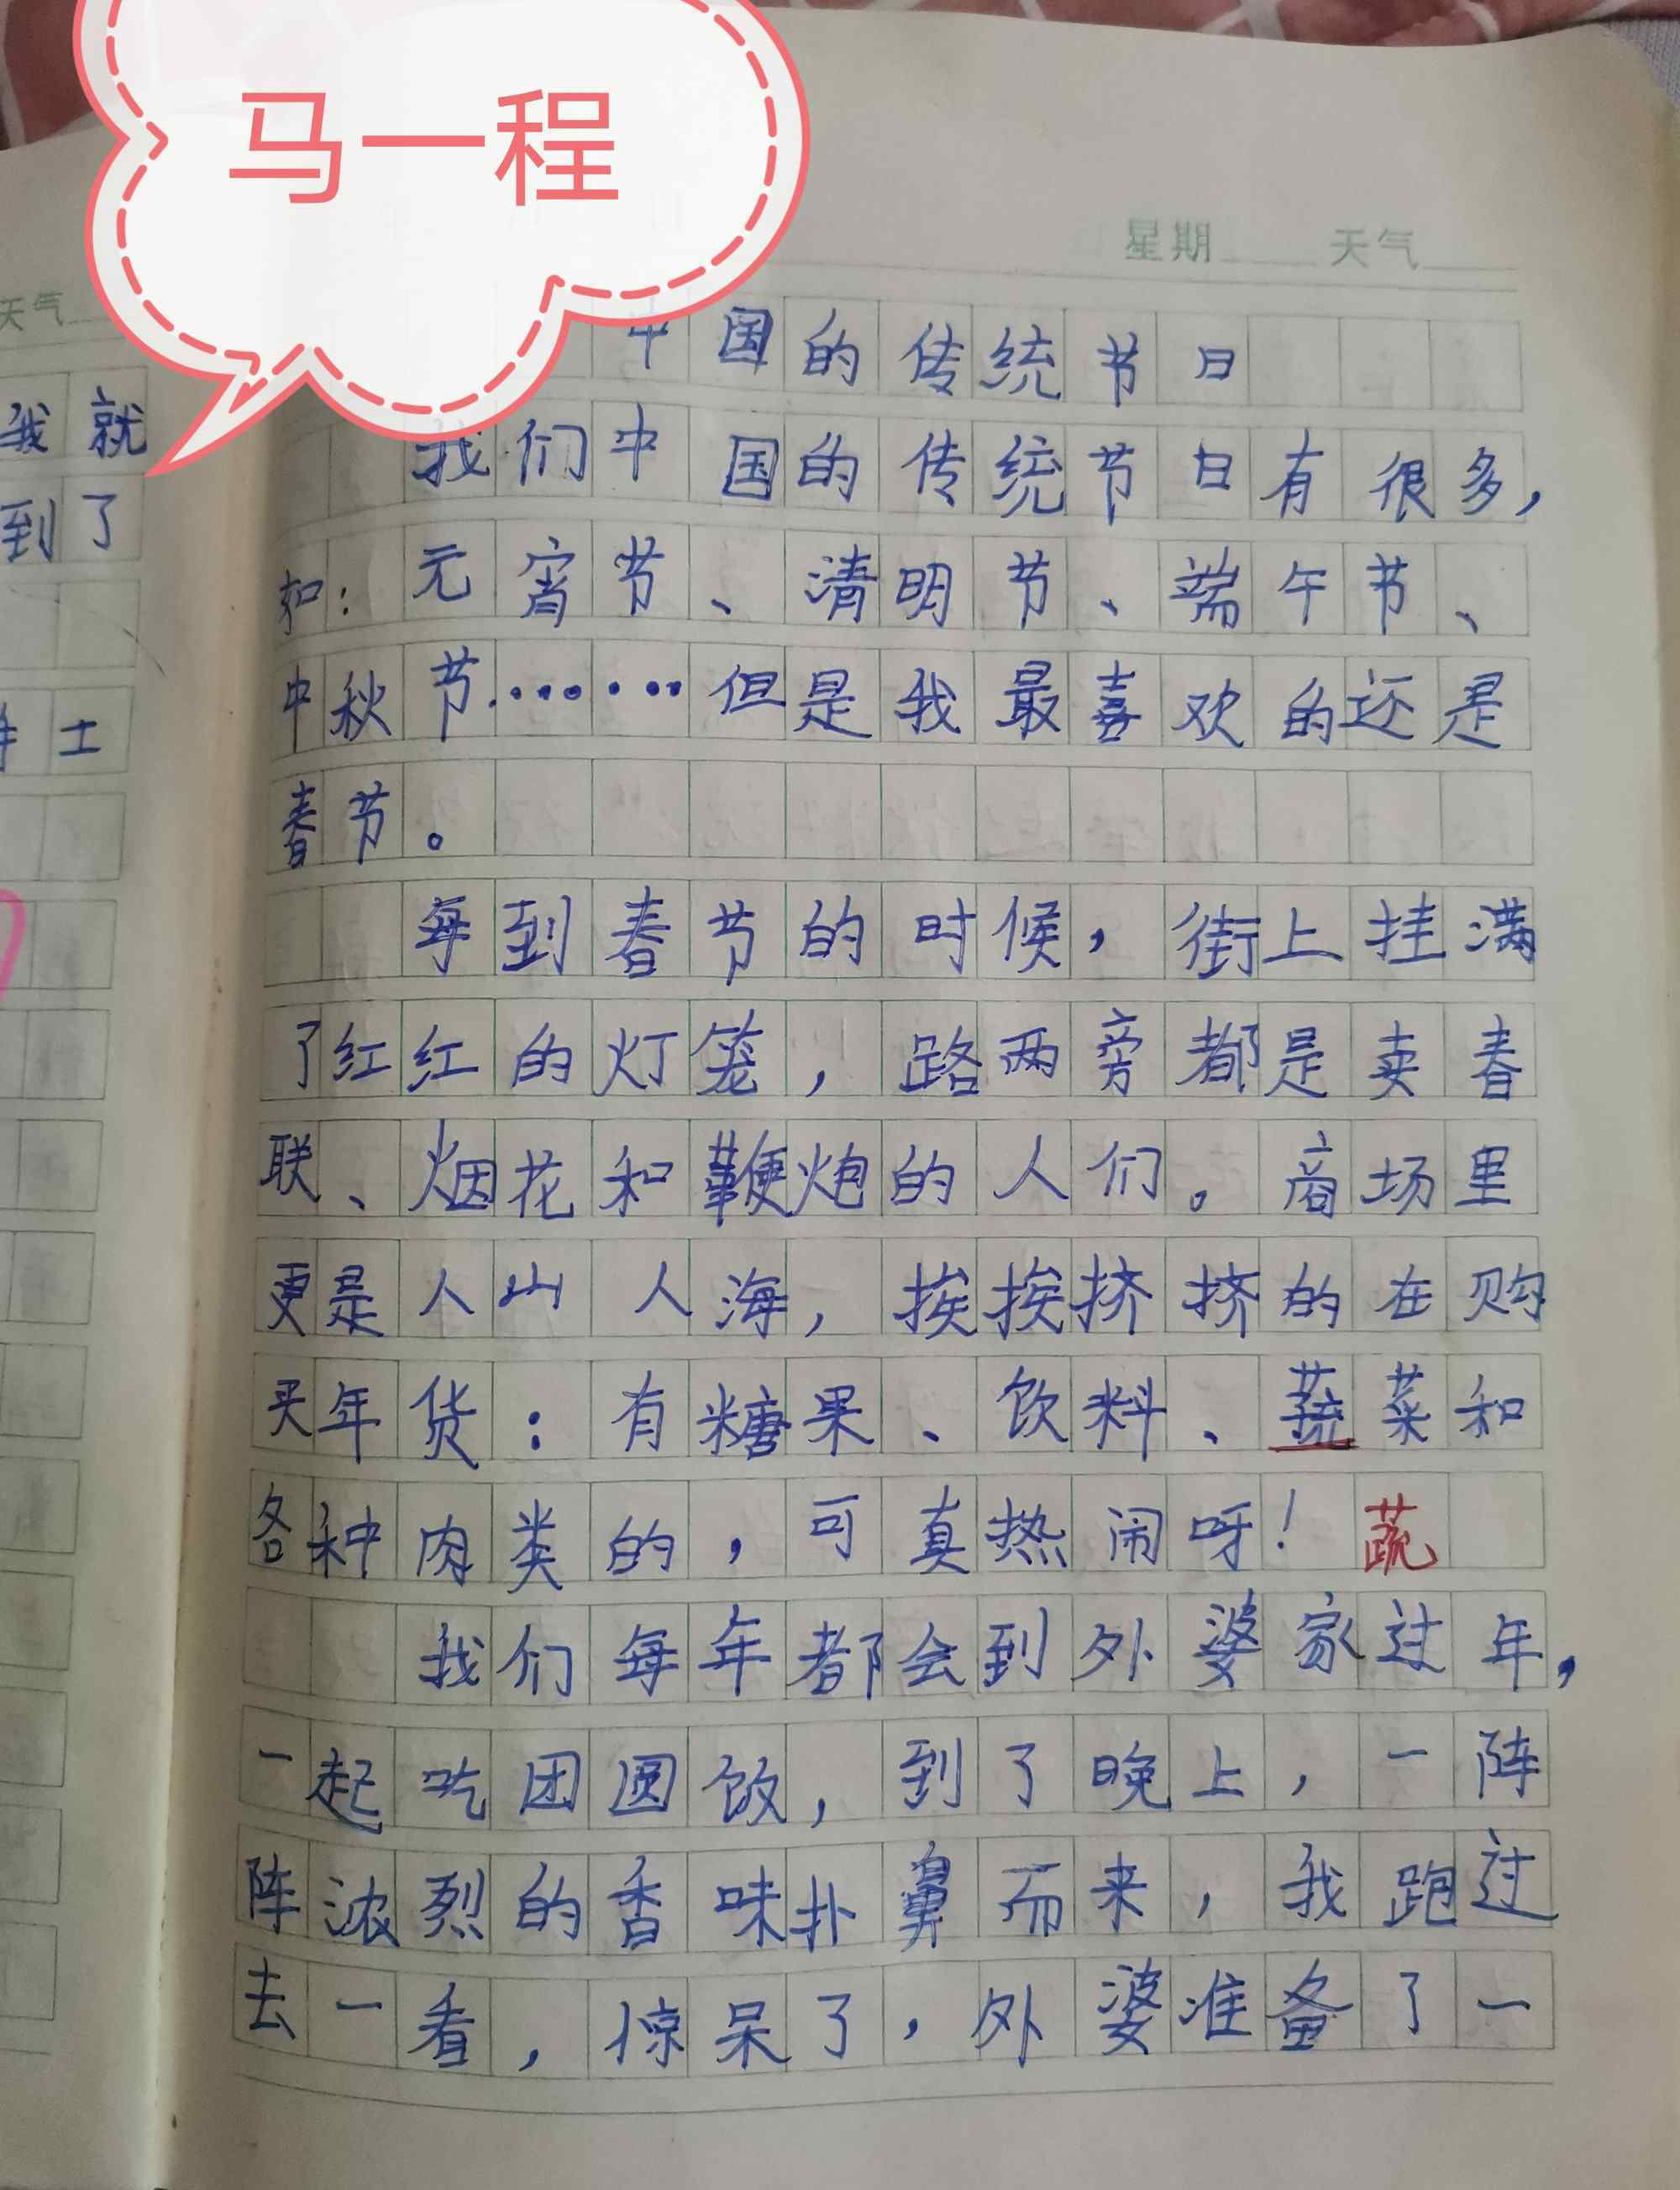 马一程
星期 天气
中国的传统节日
我们中国的传统节日有很多,
如:元宵节、清明节、端午节、
中秋节……但是我最喜欢的还是
春节。
每到春节的时候,街上挂满
了红红的灯笼,路两旁都是卖春
联、烟花和鞭炮的人们。商场里
更是人山人海,挨挨挤挤的在购
买年货:有糖果、饮料、蔬菜和
各种肉类的,可真热闹呀!蔬
我们每年都会到外婆家过年,
一起吃团圆饭,到了晚上,一阵
阵浓烈的香味扑鼻而来,我跑过
去一看,惊呆了,外婆准备了一
天气
我就
到了
士